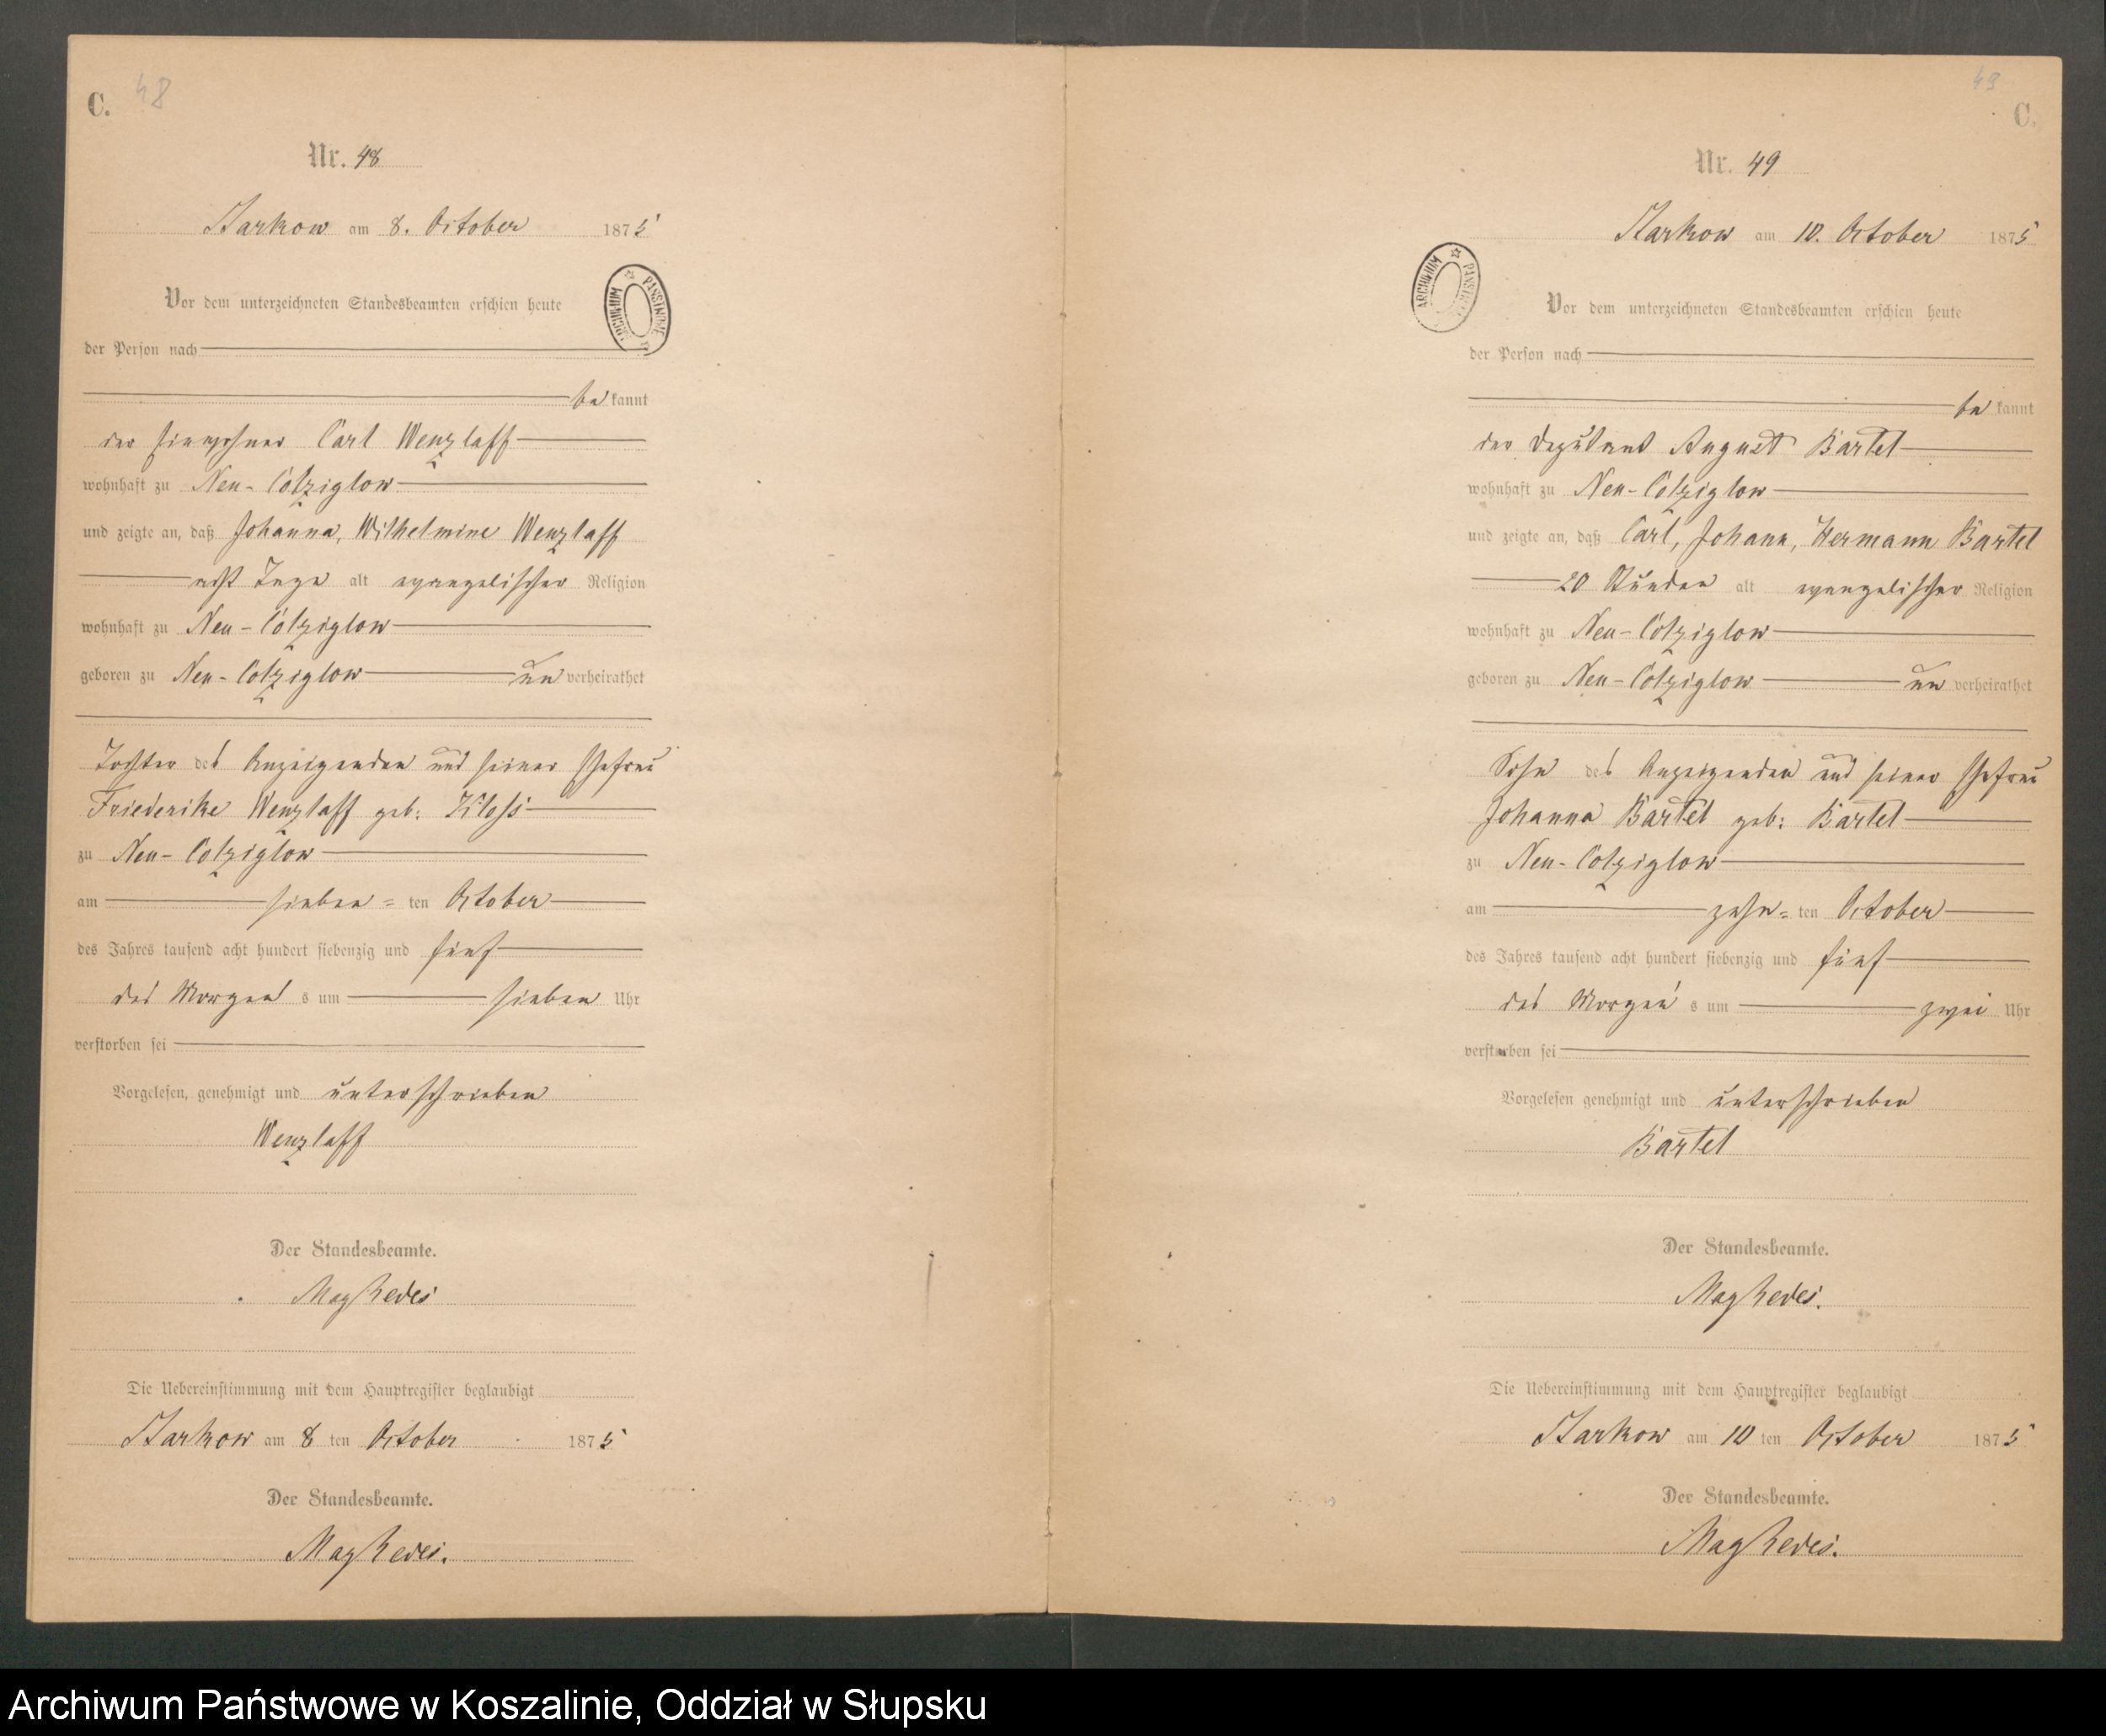 C. 48
Nr. 48
Starkow am 8. October 1875
Vor dem unterzeichneten Standesbeamten erschien heute
der Person nach
bekannt
der Einwohner Carl Wenzlaff
wohnhaft zu Neu-Colziglow
und zeigte an, daß Johanna, Wilhelmine Wenzlaff
acht Tage alt evangelischer Religion
wohnhaft zu Neu-Colziglow
geboren zu Neu-Colziglow unverheirathet
Tochter des Anzeigenden und seiner Ehefrau
Friederike Wenzlaff geb: Kloss
zu Neu-Colziglow
am sieben=ten October
des Jahres tausend acht hundert siebenzig und fünf
des Morgens um sieben Uhr
verstorben sei
Vorgelesen, genehmigt und unterschrieben
Wenzlaff
Der Standesbeamte.
Die Uebereinstimmung mit dem Hauptregister beglaubigt
Starkow am 8ten October 1875
Der Standesbeamte.
ARCHIWUM PAŃSTWOWE
49
C.
Nr. 49
Starkow am 10. October 1875
Vor dem unterzeichneten Standesbeamten erschien heute
der Person nach
bekannt
der Deputant August Bartel
wohnhaft zu Neu-Colziglow
und zeigte an, daß Carl, Johann, Hermann Bartel
20 Stunden alt evangelischer Religion
wohnhaft zu Neu-Colziglow
geboren zu Neu-Colziglow unverheirathet
Sohn des Anzeigenden und seiner Ehefrau
Johanna Bartel geb: Bartel
zu Neu-Colziglow
am zehn=ten October
des Jahres tausend acht hundert siebenzig und fünf
des Morgens um zwei Uhr
verstorben sei
Vorgelesen genehmigt und unterschrieben
Bartel
Der Standesbeamte.
Die Uebereinstimmung mit dem Hauptregister beglaubigt
Starkow am 10ten October 1875
Der Standesbeamte.
ARCHIWUM PAŃSTWOWE
Archiwum Państwowe w Koszalinie, Oddział w Słupsku